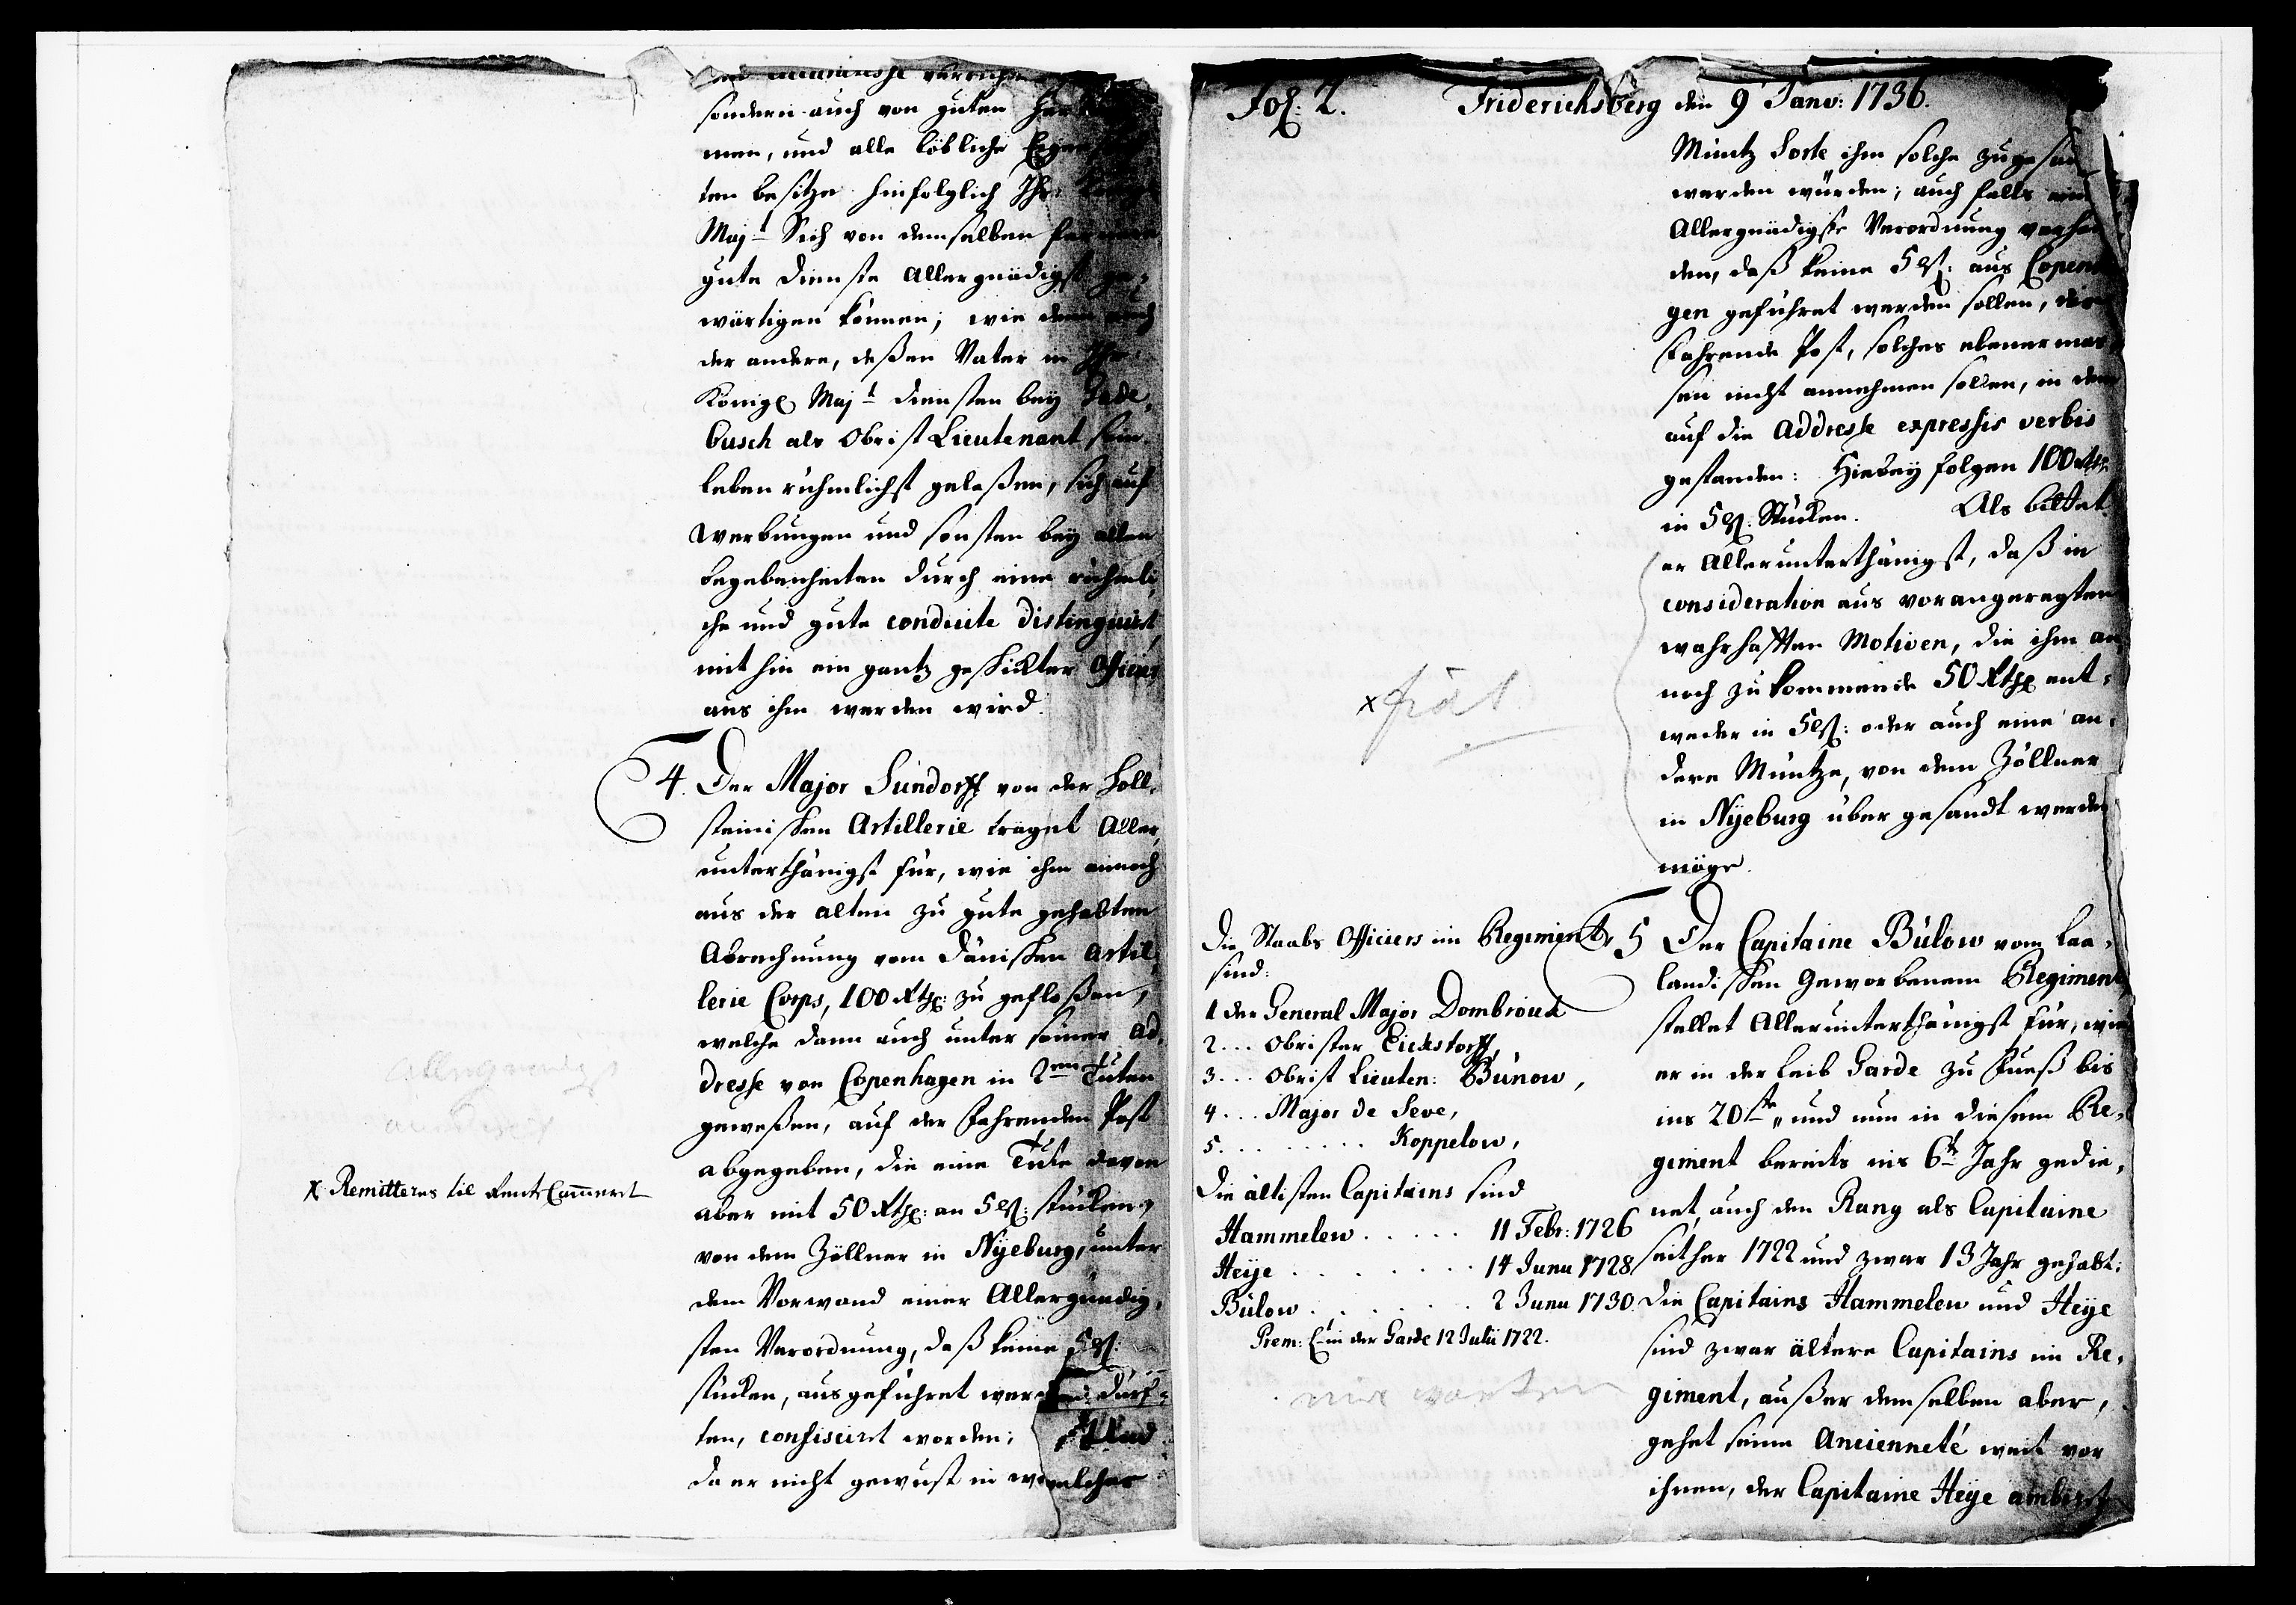 sondern auch von guten
men, und alle löbliche
ten besitze hinfolglich Ihr:
Majt Sich von demselben
gute Dienste Allergnädigst ge-
wärtigen können; wie denn auch
der andere, deßen Vater in Ihr.
Königl Majt Diensten bey Gade-
busch als Obrist Lieutenant sein
leben rühmlichst gelaßen, sich auf
Werbungen und sonsten bey allen
begebenheiten durch eine rühmli-
che und gute conduite distinguirt,
mit hin ein gantz geschickter Officier
aus ihm werden wird.
4. Der Major Sundorff von der Holl-
steinischen Artillerie träget Aller-
unterthänigst für, wie ihm annoch
aus der alten zu gute gehabten
Abrechnung vom Dänischen Artil-
lerie Corps, 100 Rthl: zu gefloßen,
welche dann auch unter seiner Ad-
dresse von Copenhagen in 2en Tuten
geweßen, auf der fahrenden Post
abgegeben, die eine Tute davon
aber mit 50 Rthl: an 5 ßl: stücken,
von dem Zöllner in Nyeburg, unter
dem Vorwand einer Allergnädig-
sten Verordnung, daß keine 5 ßl:
stücken, ausgeführet werden dürf-
ten, confisciret worden; Und
da er nicht gewust in welcher
x Remitteres til Rente Cammeret
Fol: 2. Friderichsberg den 9 Janv: 1736.
Müntz Sorte ihm solche zugesan
werden würden; auch falls eine
Allergnädigste Verordnung verhan
den, daß keine 5 ßl: aus Copenh
gen geführet werden sollen, die
fahrende Post, solches ebener mas
sen nicht annehmen sollen, in dem
auf die Addresse expressis verbis
gestanden: Hiebey folgen 100 Rthl
in 5 ßl: Stücken. Als bittet
er Allerunterthänigst, daß in
consideration aus vorangeregten
wahrhafften Motiven, die ihm an
noch zu kommende 50 Rthl ent-
weder in 5 ßl: oder auch eine an-
dere Müntze, von dem Zöllner
in Nyeburg über gesandt werden
möge.
x fiat
5 Der Capitaine Bülow vom Laa-
landischen Geworbenem Regiment
stellet Allerunterthänigst für, wie
er in der Leib Garde zu Fueß bis
ins 20ste, und nun in diesem Re-
giment bereits ins 6te Jahr gedie-
net, auch den Rang als Capitaine
seither 1722 und zwar 13 Jahr gehabt:
die Capitains Hammelew und Heye
sind zwar ältere Capitains im Re-
giment, außer demselben aber,
gehet seine Ancienneté weit vor
ihnen, der Capitaine Heye ambirt
Die Staabs Officiers im Regiment
sind:
1 der General Major Dombroick
2 ... Obrister Eickstorff,
3 ... Obrist Lieuten: Bünow,
4 ... Major de Seve,
5 ........ Koppelow,
Die ältisten Capitains sind
Hammelew ..... 11 Febr: 1726
Heye ....... 14 Junii 1728
Bülow ...... 2 Junii 1730.
Prem: L. in der Garde 12 Julii 1722.